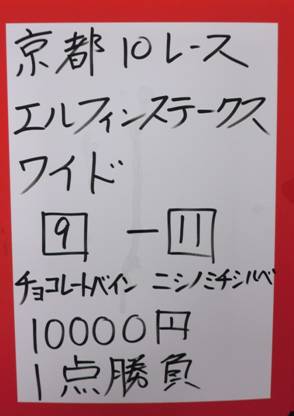 京都10レース
エルフィンステークス
ワイド
9 ー 11
チョコレートベイン ニシノミチシルベ
10000円
1点勝負